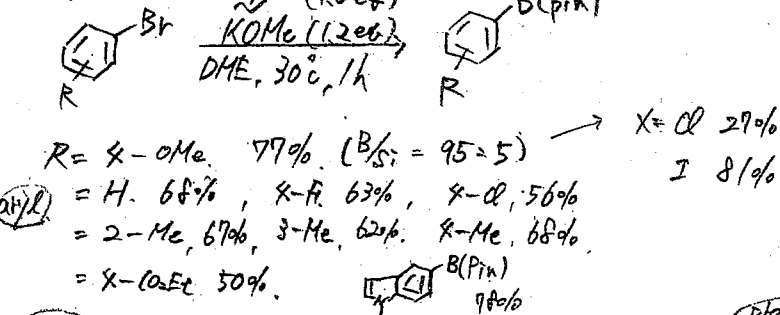 Br
KOMe (1.2eq)
DME, 30°C, 1h
B(pin)
R
R
R = 4-OMe. 77% (B/Si = 95:5) → X = Cl 27%
I 81%
aryl
= H. 68%, 4-F. 63%, 4-Cl, 56%
= 2-Me, 67%, 3-Me, 62%. 4-Me, 68%
= 4-CO2Et 50%.
B(Pin)
78%